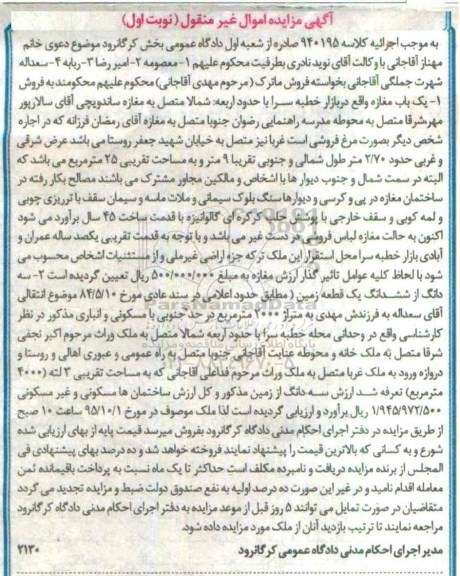 آگهی مزایده اموال غیر منقول (نوبت اول)
به موجب اجرائیه کلاسه ۹۴۰۱۹۵ صادره از شعبه اول دادگاه عمومی بخش کرگانرود موضوع دعوی خانم
مهناز آقاجانی با وکالت آقای نوید نادری بطرفیت محکوم علیهم ۱- معصومه ۲- امیر رضا ۳- ربابه ۴- سعداله
شهرت جملگی آقاجانی بخواسته فروش ماترک (مرحوم مهدی آقاجانی) محکوم علیهم محکومند به فروش
۱- یک باب مغازه واقع دربازار خطبه سرا با حدود اربعه: شمالا متصل به مغازه ساندویچی آقای سالارپور
مهر شرقا متصل به محوطه مدرسه راهنمایی رضوان جنوبا متصل به مغازه آقای رمضان فرزانه که در اجاره
شخص دیگر بصورت مرغ فروشی است غربا نیز متصل به خیابان شهید جعفر روستا می باشد عرض شرقی
و غربی حدود ۲/۷۰ متر طول شمالی و جنوبی تقریبا ۹ متر و به مساحت تقریبی ۲۵ مترمربع می باشد که
البته در سمت شمال و جنوب دیوار ها با اشخاص و مالکین مجاور مشترک می باشند مصالح بکار رفته در
ساختمان مغازه در پی و کرسی و دیوارها سنگ بلوک سیمانی و ملات ماسه و سیمان سقف با تیرریزی چوبی
و لمه کوبی و سقف خارجی با پوشش حلب کرکره ای گالوانیزه با قدمت ساخت ۴۵ سال برآورد می شود
اکنون به حالت مغازه لباس فروشی در دست غیر می باشد و با توجه به قدمت تقریبی یکصد ساله عمران و
آبادی بازار خطبه سرا محل استقرار این ملک ترکه جزء اراضی غیر ملی و از مستثنیات اشخاص محسوب می
شود با لحاظ کلیه عوامل تاثیر گذار ارزش مغازه به مبلغ ۵۰۰/۰۰۰/۰۰۰ ریال تعیین گردیده است ۲- سه
دانگ از ششدانگ یک قطعه زمین (مطابق حدود اعلامی در سند عادی مورخ ۸۴/۵/۱۰ موضوع انتقالی
آقای سعداله به فرزندش مهدی به متراژ ۲۰۰۰ مترمربع در حد جنوبی با مسکونی و انباری مذکور در نظر
کارشناسی واقع در وحدانی محله خطبه سرا با حدود اربعه شمالا متصل به ملک وراث مرحوم اکبر نجفی
شرقا متصل به ملک خانه و محوطه عنایت آقاجانی جنوبا متصل به راه عمومی و عبوری اهالی و روستا و
دروازه ورود به ملک غربا متصل به ملک وراث مرحوم فداعلی آقاجانی که به مساحت تقریبی ۳ لته (۴۰۰۰
مترمربع) تعرفه شد ارزش سه دانگ از زمین مذکور و کل ارزش ساختمان ها مسکونی و غیر مسکونی
۱/۹۴۵/۹۷۲/۵۰۰ ریال برآورد و ارزیابی گردیده است لذا ملک موصوف در مورخ ۹۵/۱۰/۱ ساعت ۱۰ صبح
از طریق مزایده در دفتر اجرای احکام مدنی دادگاه کرگانرود بفروش میرسد قیمت پایه از بهای ارزیابی شده
شروع و به کسانی که بالاترین قیمت را پیشنهاد نمایند فروخته خواهد شد و ده درصد بهای پیشنهادی فی
المجلس از برنده مزایده دریافت و نامبرده مکلف است حداکثر تا یک ماه نسبت به پرداخت باقیمانده ثمن
معامله اقدام نامید و در غیر این صورت ده درصد اولیه به نفع صندوق دولت ضبط و مزایده تجدید می گردد
متقاضیان در صورت تمایل می توانند ۵ روز قبل از موعد مزایده به دفتر اجرای احکام مدنی دادگاه کرگانرود
مراجعه نمایند تا ترتیب بازدید آنان از ملک مورد مزایده داده شود.
مدیر اجرای احکام مدنی دادگاه عمومی کرگانرود ۲۱۳۰